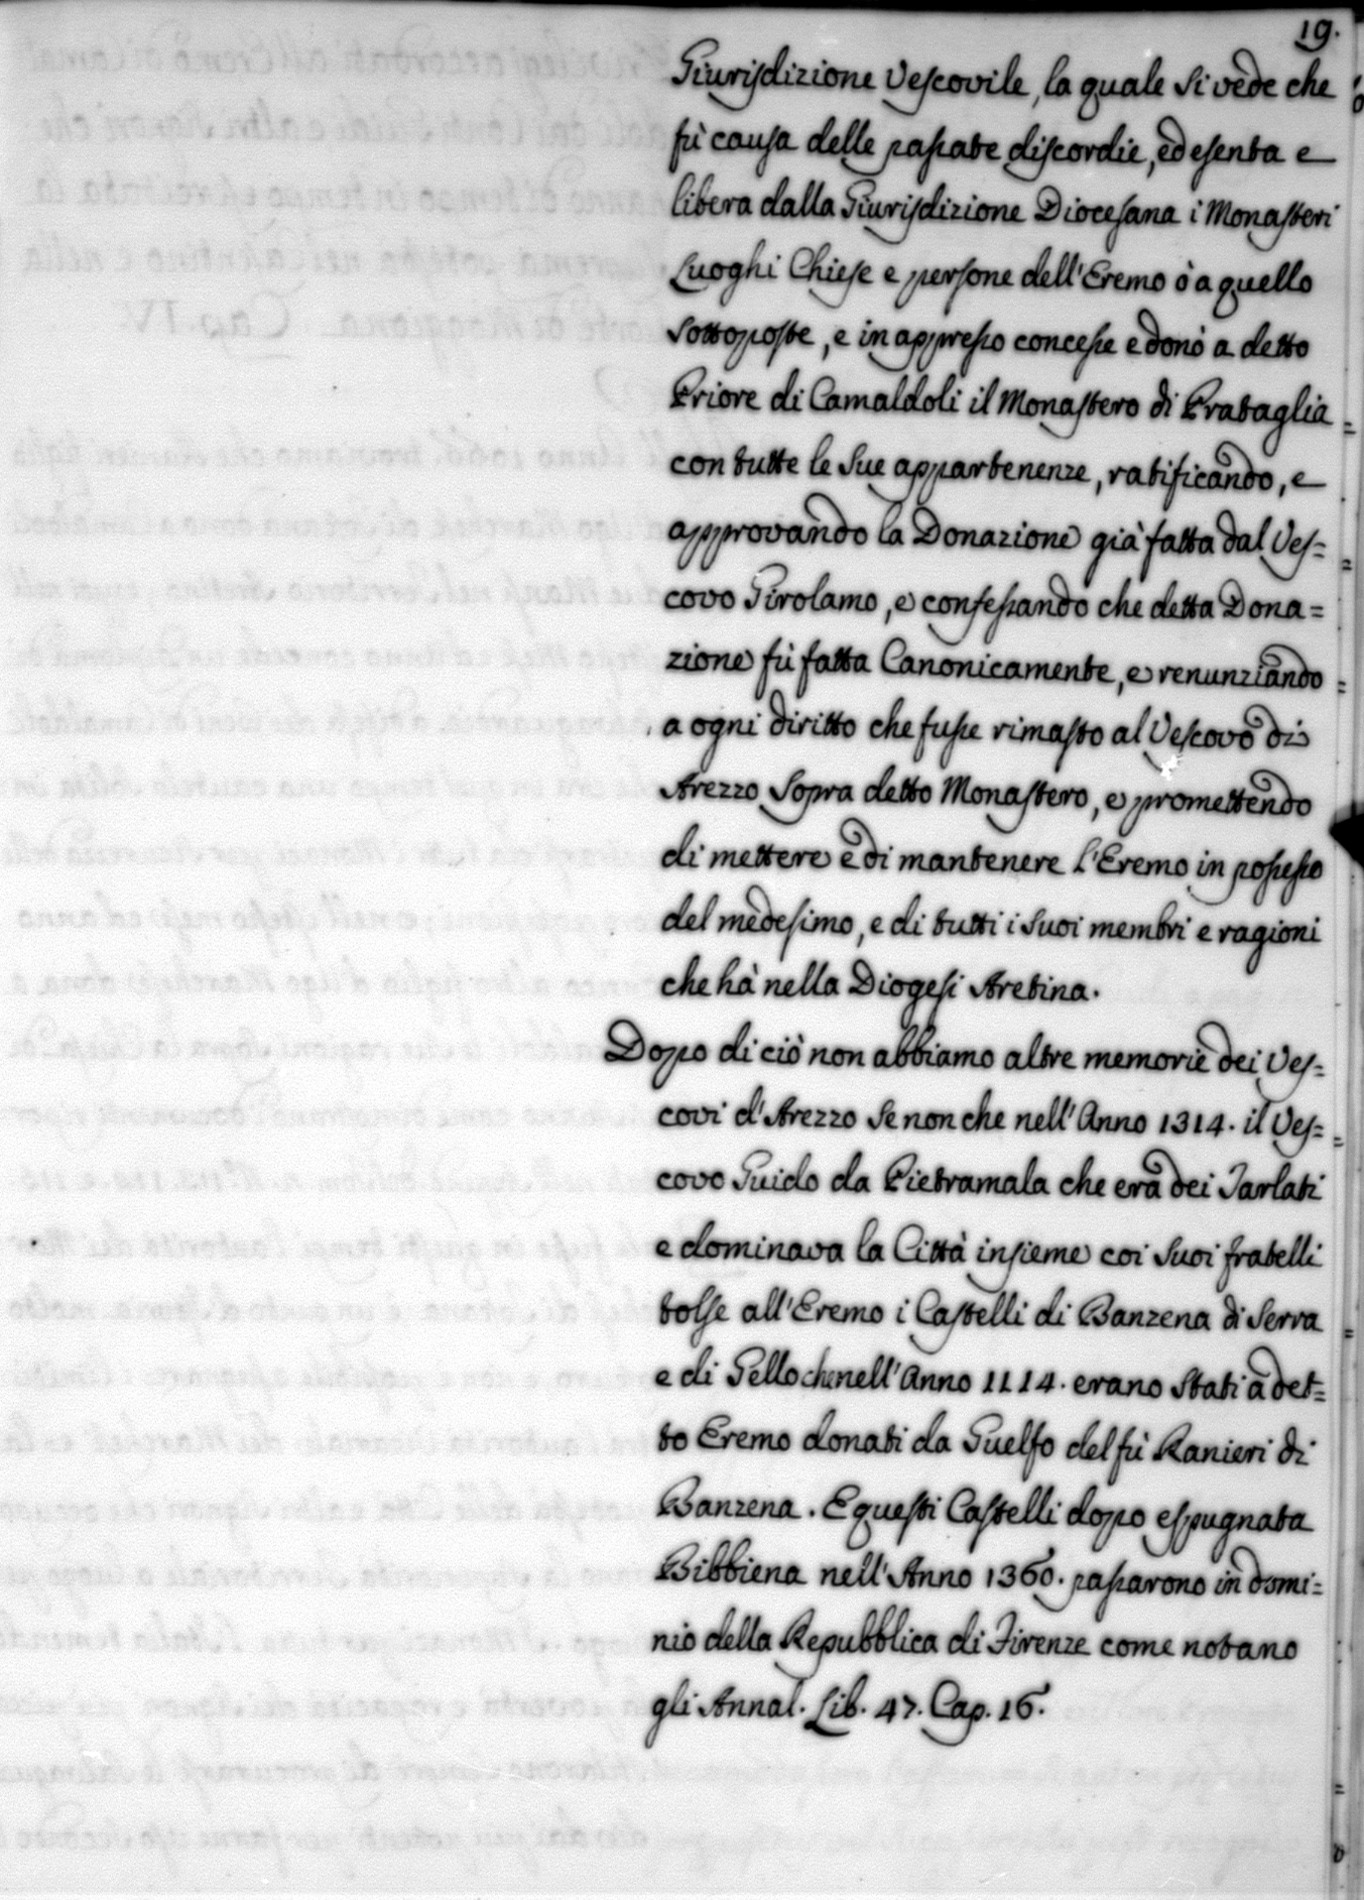 19.
Giurisdizione Vescovile, la quale si vede che
fù causa delle passate discordie, ed esenta e
libera dalla Giurisdizione Diocesana i Monasteri
Luoghi Chiese e persone dell'Eremo ò a quello
sottoposte, e in appresso concesse e donò a detto
Priore di Camaldoli il Monastero di Prataglia
con tutte le sue appartenenze, ratificando, e
approvando la Donazione già fatta dal Ves=
covo Girolamo, e confessando che detta Dona=
zione fù fatta Canonicamente, e renunziando
a ogni diritto che fusse rimasto al Vescovo di
Arezzo sopra detto Monastero, e promettendo
di mettere e di mantenere l'Eremo in possesso
del medesimo, e di tutti i suoi membri e ragioni
che hà nella Diogesi Aretina.
Dopo di ciò non abbiamo altre memorie dei Ves=
covi d'Arezzo se non che nell'Anno 1314. il Ves=
covo Guido da Pietramala che era dei Tarlati
e dominava la Città insieme coi suoi fratelli
tolse all'Eremo i Castelli di Banzena di Serra
e di Gello che nell'Anno 1114. erano stati a det=
to Eremo donati da Guelfo del fù Ranieri di
Banzena. E questi Castelli dopo espugnata
Bibbiena nell'Anno 1360. passarono in domi=
nio della Repubblica di Firenze come notano
gli Annal. Lib. 47. Cap. 16.